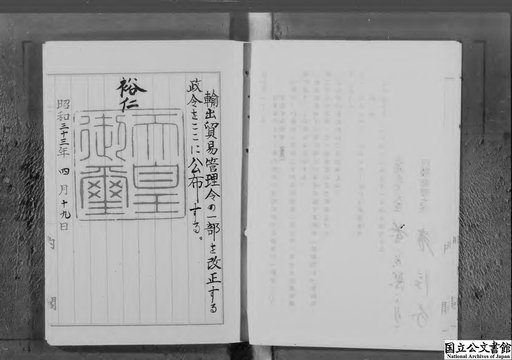 輸出貿易管理令の一部を改正する
政令をここに公布する。
裕仁
天皇
御璽
昭和三十三年四月十九日
内閣
国立公文書館
National Archives of Japan